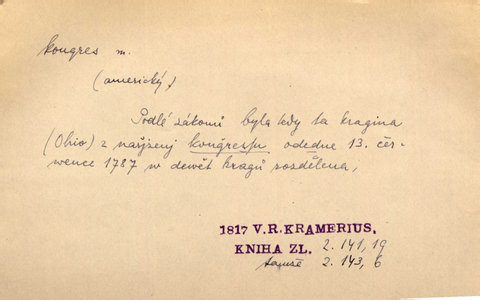 kongres m.
(americký)
Podlé zákonů byla kdy ta kragina
(Ohio) z nařjzenj kongresu odedne 13. čer-
wence 1787 w dewět kragů rozdělena,
1817 V.R.KRAMERIUS,
KNIHA ZL. 2. 141, 19
tamže 2. 143, 6